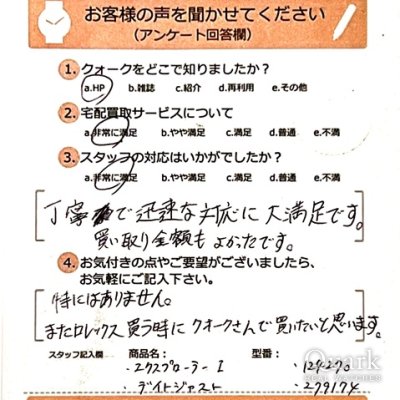 お客様の声を聞かせてください
(アンケート回答欄)
1. クォークをどこで知りましたか?
a.HP b.雑誌 c.紹介 d.再利用 e.その他
2. 宅配買取サービスについて
a.非常に満足 b.やや満足 c.満足 d.普通 e.不満
3. スタッフの対応はいかがでしたか?
a.非常に満足 b.やや満足 c.満足 d.普通 e.不満
丁寧で迅速な対応に大満足です。
買い取り金額もよかったです。
4. お気付きの点やご要望がございましたら、
お気軽にご記入下さい。
特にはありません。
またロレックス買う時にクオークさんで買いたいと思います。
スタッフ記入欄 商品名: 型番:
・エクスプローラーI ・124270
・デイトジャスト ・279174
Quark